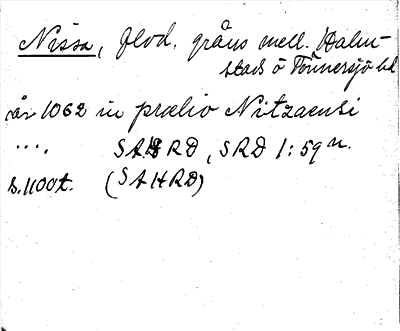 Nissa, flod. gräns mell. Halm-
stads o Tönnersjö hd
år 1062 in prœlio Nitzaensi
.... SAHRD, SRD 1:59 n.
s. 1100t. (SAHRD)